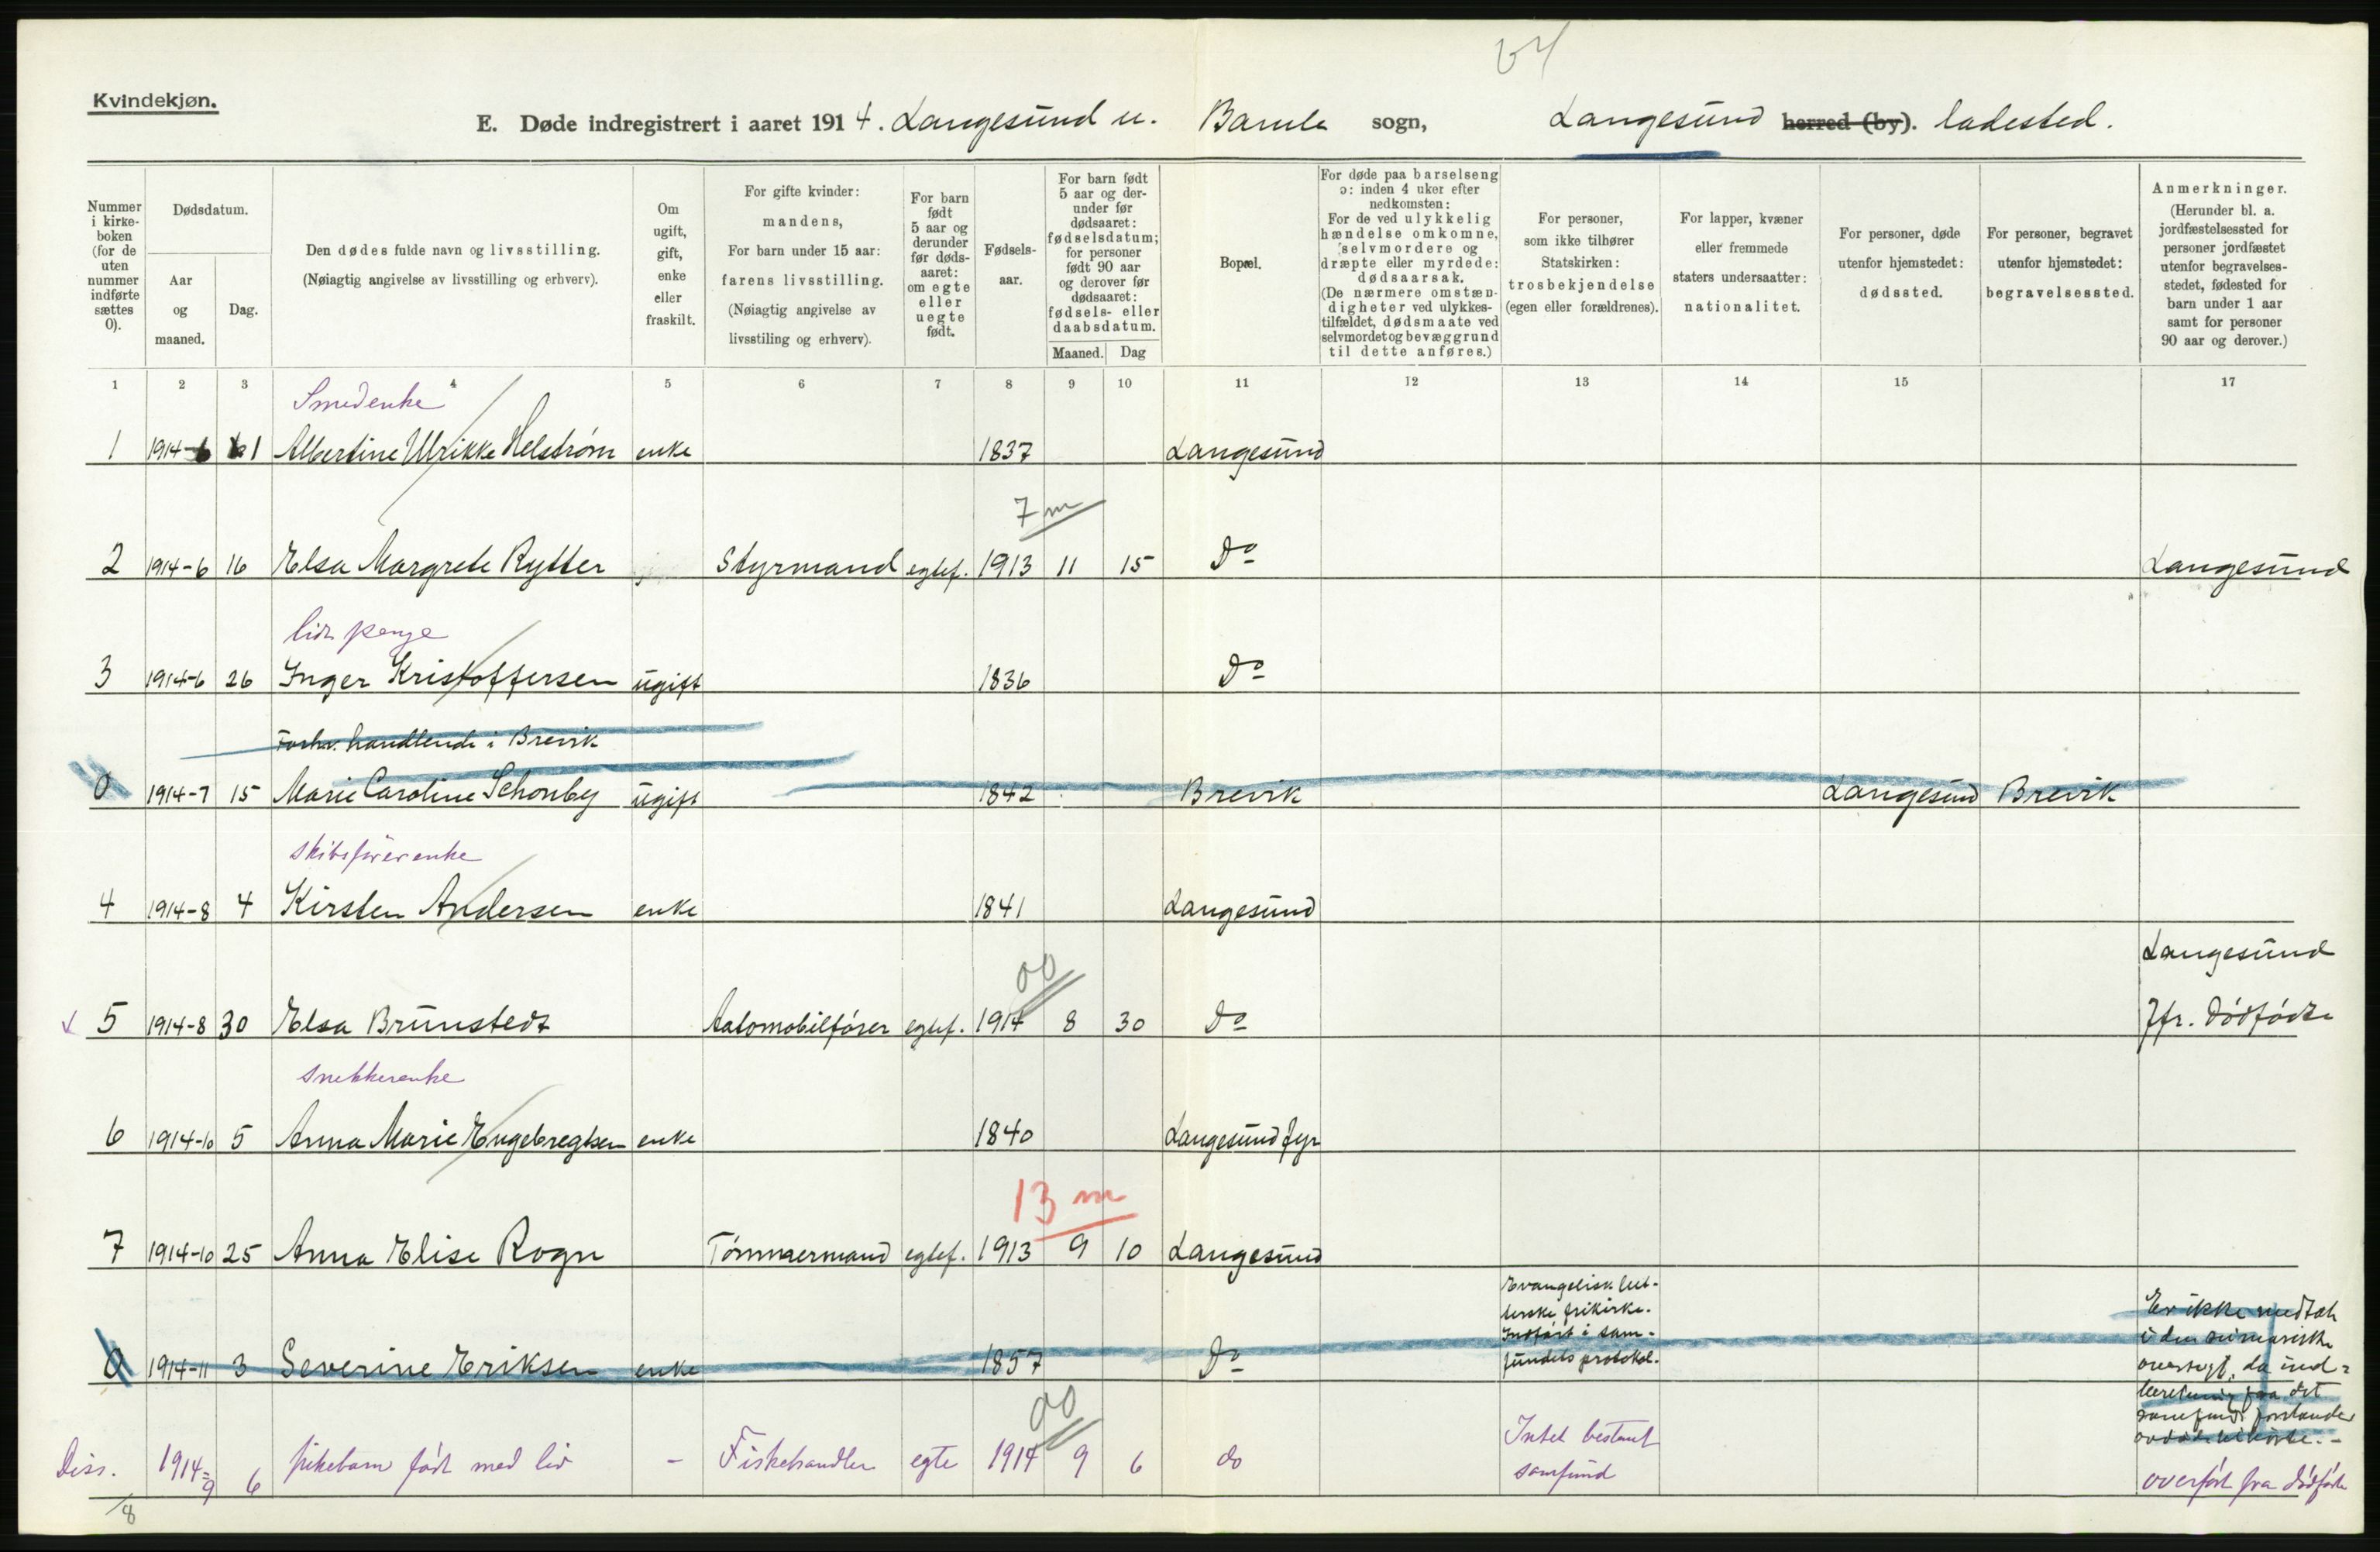 64
Kvindekjøn.
E. Døde indregistrert i aaret 1914. Langesund u. Bamle sogn, Langesund herred (by). ladested.
Nummer i kirkeboken (for de uten nummer indførte sættes 0).
Dødsdatum.
Aar og maaned.
Dag.
Den dødes fulde navn og livsstilling.
(Nøiagtig angivelse av livsstilling og erhverv).
Om ugift, gift, enke eller fraskilt.
For gifte kvinder: mandens,
For barn under 15 aar: farens livsstilling.
(Nøiagtig angivelse av livsstiling og erhverv).
For barn født 5 aar og derunder før dødsaaret: om egte eller uegte født.
Fødselsaar.
For barn født 5 aar og derunder før dødsaaret: fødselsdatum; for personer født 90 aar og derover før dødsaaret: fødsels- eller daabsdatum.
Maaned. Dag
Bopæl.
For døde paa barselseng ɔ: inden 4 uker efter nedkomsten:
For de ved ulykkelig hændelse omkomne, selvmordere og dræpte eller myrdede: dødsaarsak.
(De nærmere omstændigheter ved ulykkestilfældet, dødsmaate ved selvmordet og bevæggrund til dette anføres.)
For personer, som ikke tilhører Statskirken: trosbekjendelse (egen eller forældrenes).
For lapper, kvæner eller fremmede staters undersaatter: nationalitet.
For personer, døde utenfor hjemstedet: dødssted.
For personer, begravet utenfor hjemstedet: begravelsessted.
Anmerkninger.
(Herunder bl. a. jordfæstelsessted for personer jordfæstet utenfor begravelsesstedet, fødested for barn under 1 aar samt for personer 90 aar og derover.)
1 2 3 4 5 6 7 8 9 10 11 12 13 14 15 17
Smedenke
1 1914-6 1 Albertine Ulrikke Helstrøm enke 1837 Langesund
7 m
2 1914-6 16 Elsa Margrete Rytter Styrmand egtef. 1913 11 15 Do Langesund
lidt penge
3 1914-6 26 Inger Kristoffersen ugift 1836 Do
Forhv. handlende i Brevik
0 1914-7 15 Marie Caroline Schonby ugift 1842 Brevik Langesund Brevik
skibsførerenke
4 1914-8 4 Kirsten Andersen enke 1841 Langesund
00 Langesund
5 1914-8 30 Elsa Brunstedt Automobilfører egtef. 1914 8 30 Do Jfr. dødfødte
snekkerenke
6 1914-10 5 Anna Marie Engebregtsen enke 1840 Langesund fyr
13 m
7 1914-10 25 Anna Elise Rogn Tømmermand egtef. 1913 9 10 Langesund
0 1914-11 3 Severine Eriksen enke 1857 Do
Evangelisk lut-
herske frikirke.
Indført i sam-
fundets protokol.
Er ikke medtat
i den sumariske
oversigt, da ind-
beretning fra det
samfunds forstander
00
Diss. 1914-9 6 pikebarn født med liv - Fiskehandler egte 1914 9 6 do Intet bestemt
samfund
overført fra dødfødte
/8